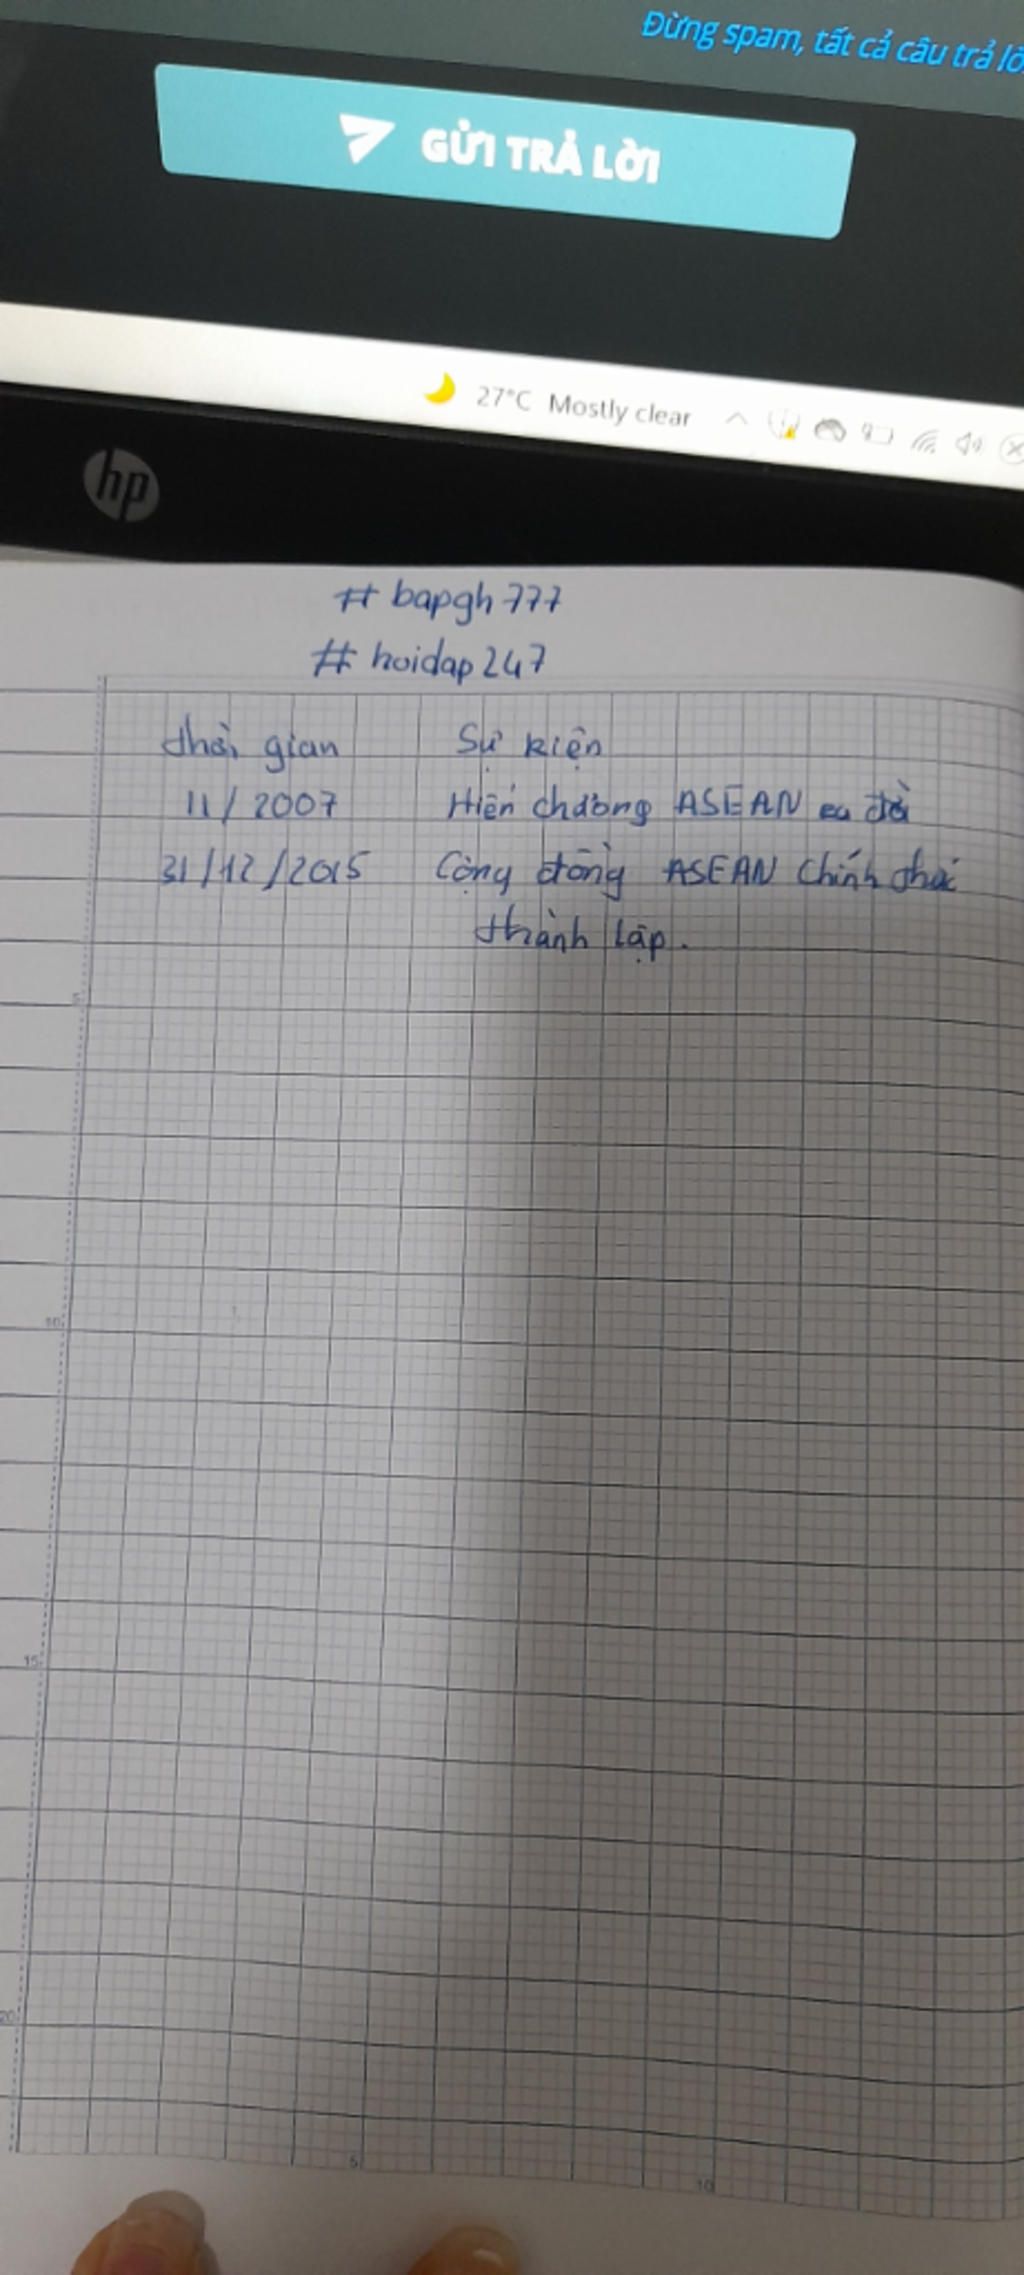 Đừng spam, tất cả câu trả lờ
GỬI TRẢ LỜI
27°C Mostly clear
hp
# bapgh777
# hoidap247
thời gian Sự kiện
11/2007 Hiến chương ASEAN ra đời
31/12/2015 Cộng đồng ASEAN Chính thức
thành lập.
5
10
15
20
5
10